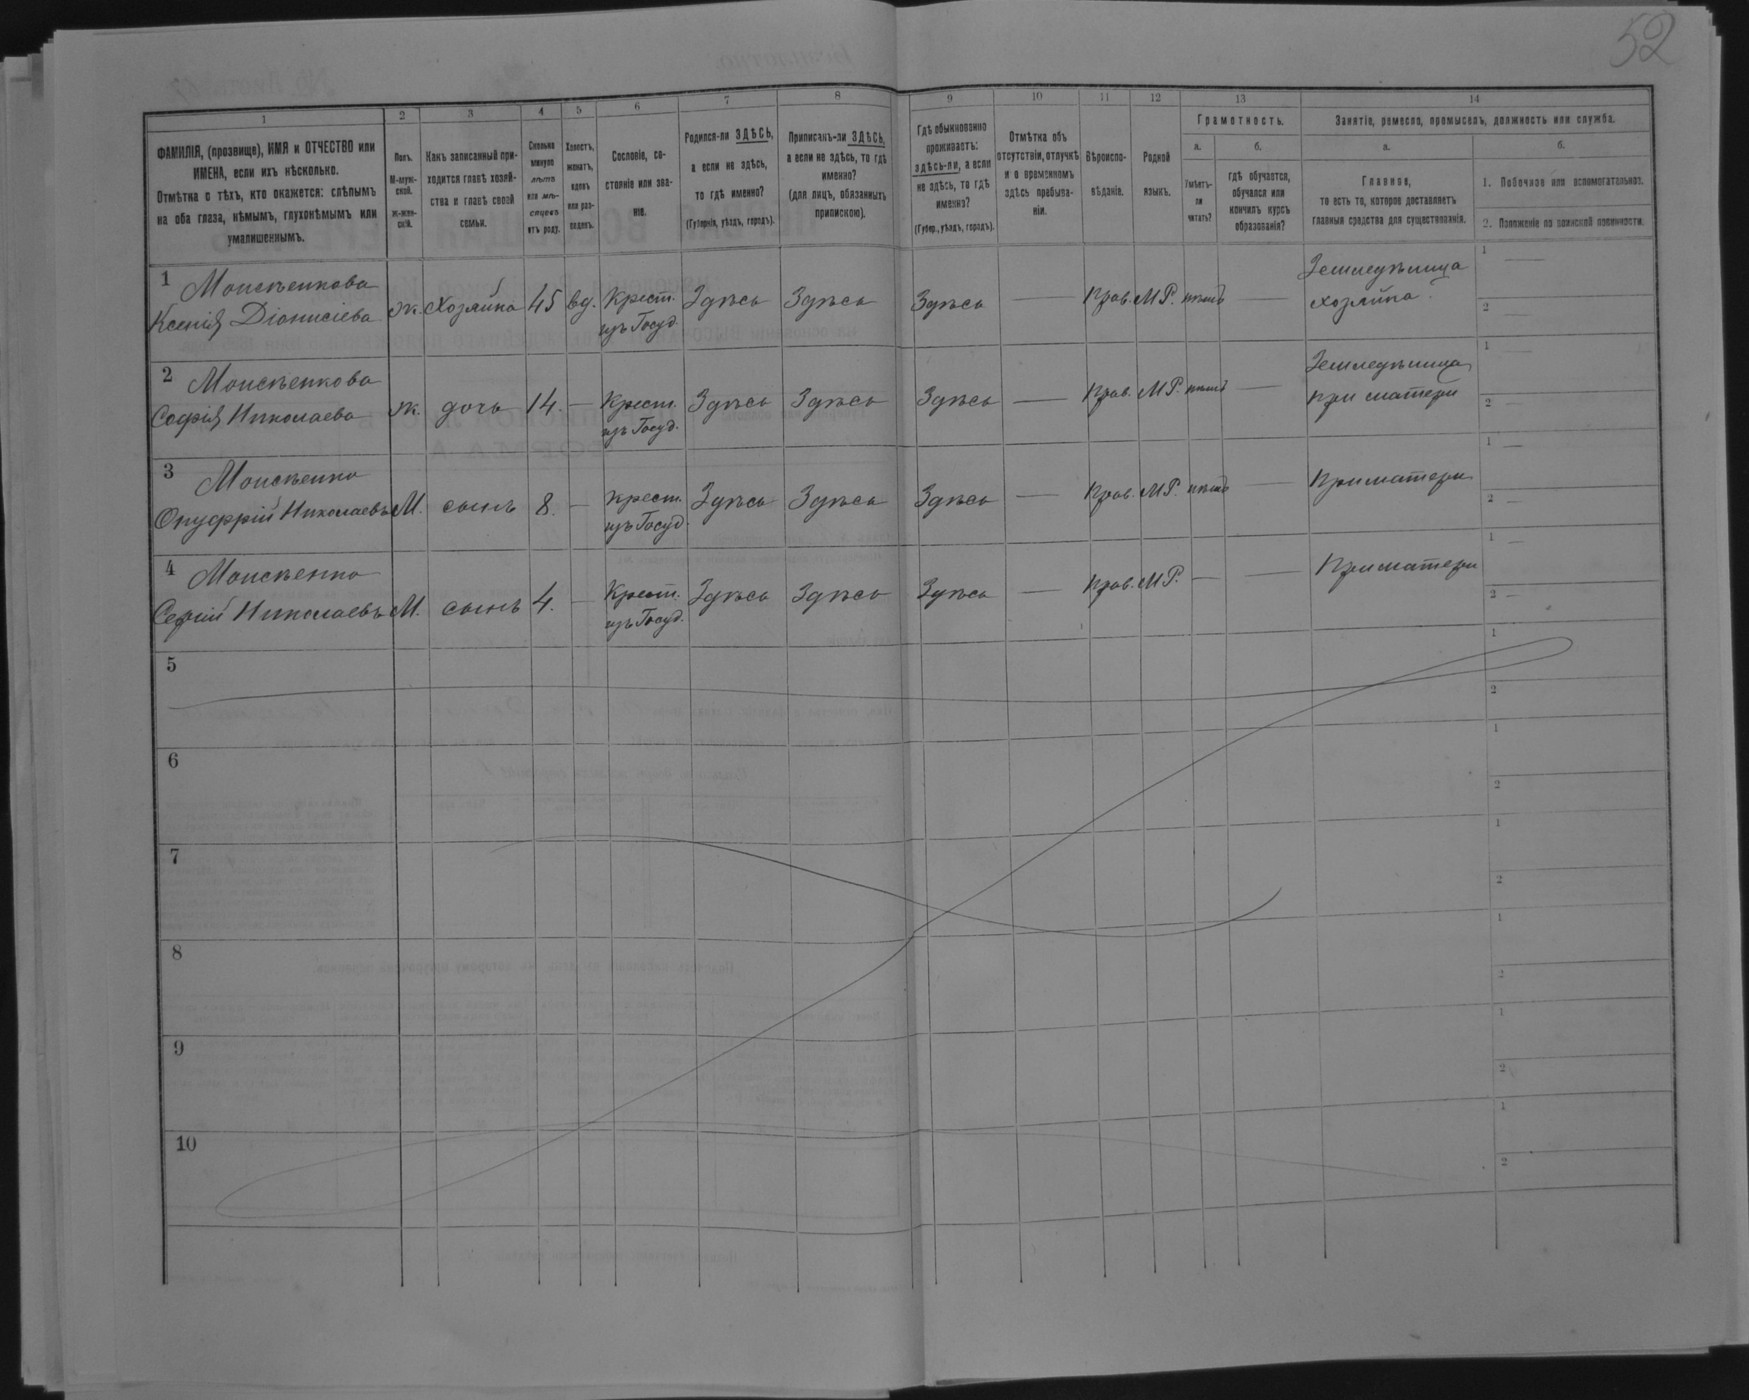 52
1
2
3
4
5
6
7
8
9
10
11
12
13
14
ФАМИЛІЯ, (прозвище), ИМЯ и ОТЧЕСТВО или
ИМЕНА, если ихъ нѣсколько.
Отмѣтка о тѣхъ, кто окажется: слѣпымъ
на оба глаза, нѣмымъ, глухонѣмымъ или
умалишеннымъ.
Полъ.
М-муж-
ской.
Ж-жен-
скій.
Какъ записанный при-
ходится главѣ хозяй-
ства и главѣ своей
семьи.
Сколько
минуло
лѣтъ
или мѣ-
сяцевъ
отъ роду.
Холостъ,
женатъ,
вдовъ
или раз-
веденъ.
Сословіе, со-
стояніе или зва-
ніе.
Родился-ли ЗДѢСЬ,
а если не здѣсь,
то гдѣ именно?
(Губернія, уѣздъ, городъ).
Приписанъ-ли ЗДѢСЬ,
а если не здѣсь, то гдѣ
именно?
(для лицъ, обязанныхъ
припискою).
Гдѣ обыкновенно
проживаетъ:
здѣсь-ли, а если
не здѣсь, то гдѣ
именно?
(Губер., уѣздъ, городъ).
Отмѣтка объ
отсутствіи, отлучкѣ
и о временномъ
здѣсь пребыва-
ніи.
Вѣроиспо-
вѣданіе.
Родной
языкъ.
Грамотность.
а.
Умѣетъ-
ли
читать?
б.
гдѣ обучается,
обучался или
кончилъ курсъ
образованія?
Занятіе, ремесло, промыселъ, должность или служба.
а.
Главное,
то есть то, которое доставляетъ
главныя средства для существованія.
б.
1. Побочное или вспомогательное.
2. Положеніе по воинской повинности.
1 Моисѣенкова
Ксенія Діонисіева Ж. Хозяйка 45 вд. Крест.
изъ Госуд. Здѣсь Здѣсь Здѣсь Прав. М Р. нѣтъ Земледѣлица
хозяйка. 1 — 2 —
2 Моисѣенкова
Софія Николаева Ж. дочь 14. — Крест.
изъ Госуд. Здѣсь Здѣсь Здѣсь — Прав. М Р. нѣтъ — Земледѣлица
при матери 1 — 2 —
3 Моисѣенко
Онуфрій Николаевъ М. сынъ 8. — Крест.
изъ Госуд. Здѣсь Здѣсь Здѣсь — Прав. М Р. нѣтъ — При матери 1 — 2 —
4 Моисѣенко
Сергій Николаевъ М. сынъ 4. — Крест.
изъ Госуд. Здѣсь Здѣсь Здѣсь — Прав. М Р. — — При матери 1 — 2 —
5 1 2
6 1 2
7 1 2
8 1 2
9 1 2
10 1 2